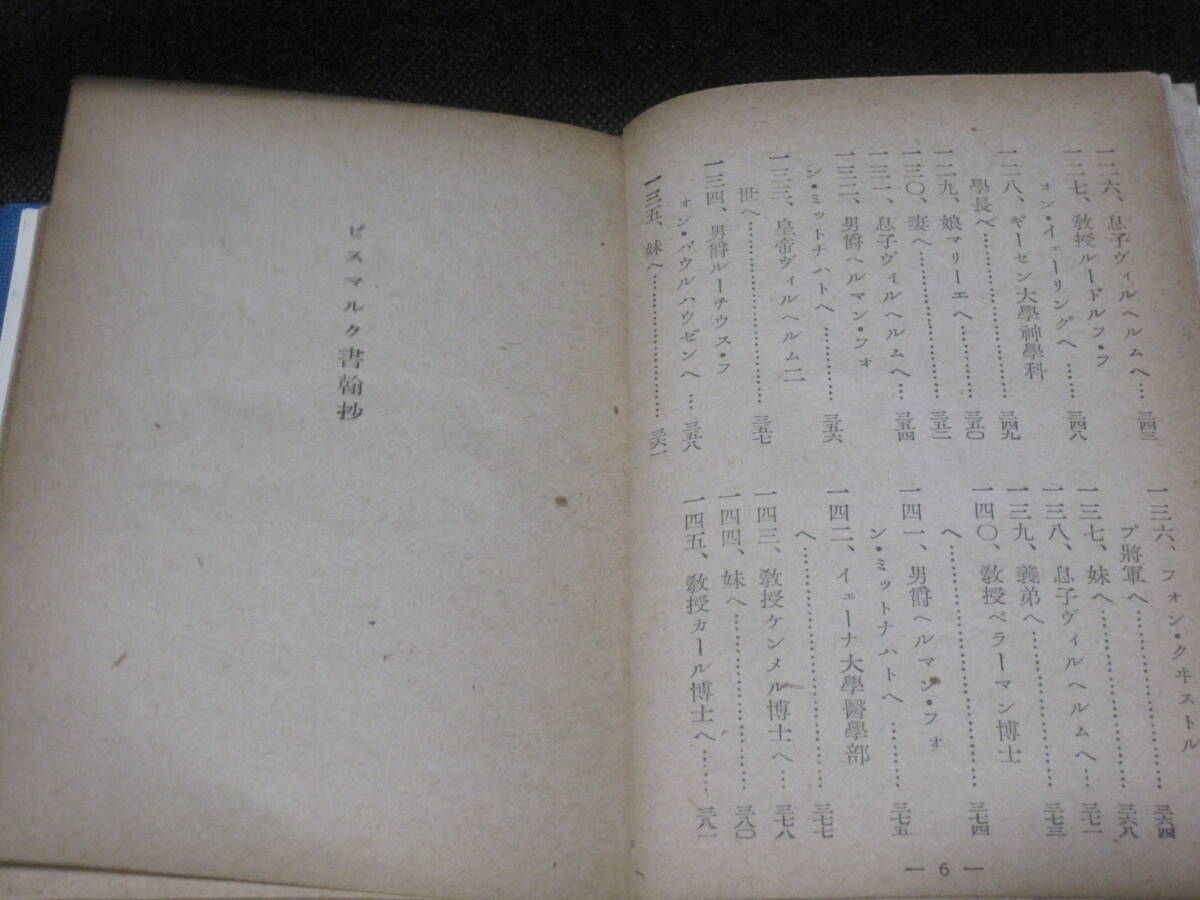 一二六、息子ヴィルヘルムへ…三四三
一二七、敎授ルードルフ・フ
ォン・イェーリングへ……三四八
一二八、ギーセン大學神學科
學長へ……………………三四九
一二九、娘マリーエへ………三五〇
一三〇、妻へ…………………三五二
一三一、息子ヴィルヘルムへ…三五四
一三二、男爵ヘルマン・フォ
ン・ミットナハトへ………三五六
一三三、皇帝ヴィルヘルム二
世へ………………………三五七
一三四、男爵ルーチウス・フ
ォン・バウルハウゼンへ…三五八
一三五、妹へ…………………三六一
一三六、フォン・クヰストル
プ將軍へ…………………三六四
一三七、妹へ…………………三六八
一三八、息子ヴィルヘルムへ…三七一
一三九、義弟へ………………三七三
一四〇、敎授ベラーマン博士
へ…………………………三七四
一四一、男爵ヘルマン・フォ
ン・ミットナハトへ………三七五
一四二、イェーナ大學醫學部
へ…………………………三七七
一四三、敎授ケンメル博士へ…三七八
一四四、妹へ…………………三八〇
一四五、敎授カール博士へ……三八一
— 6 —
ビスマルク書翰抄